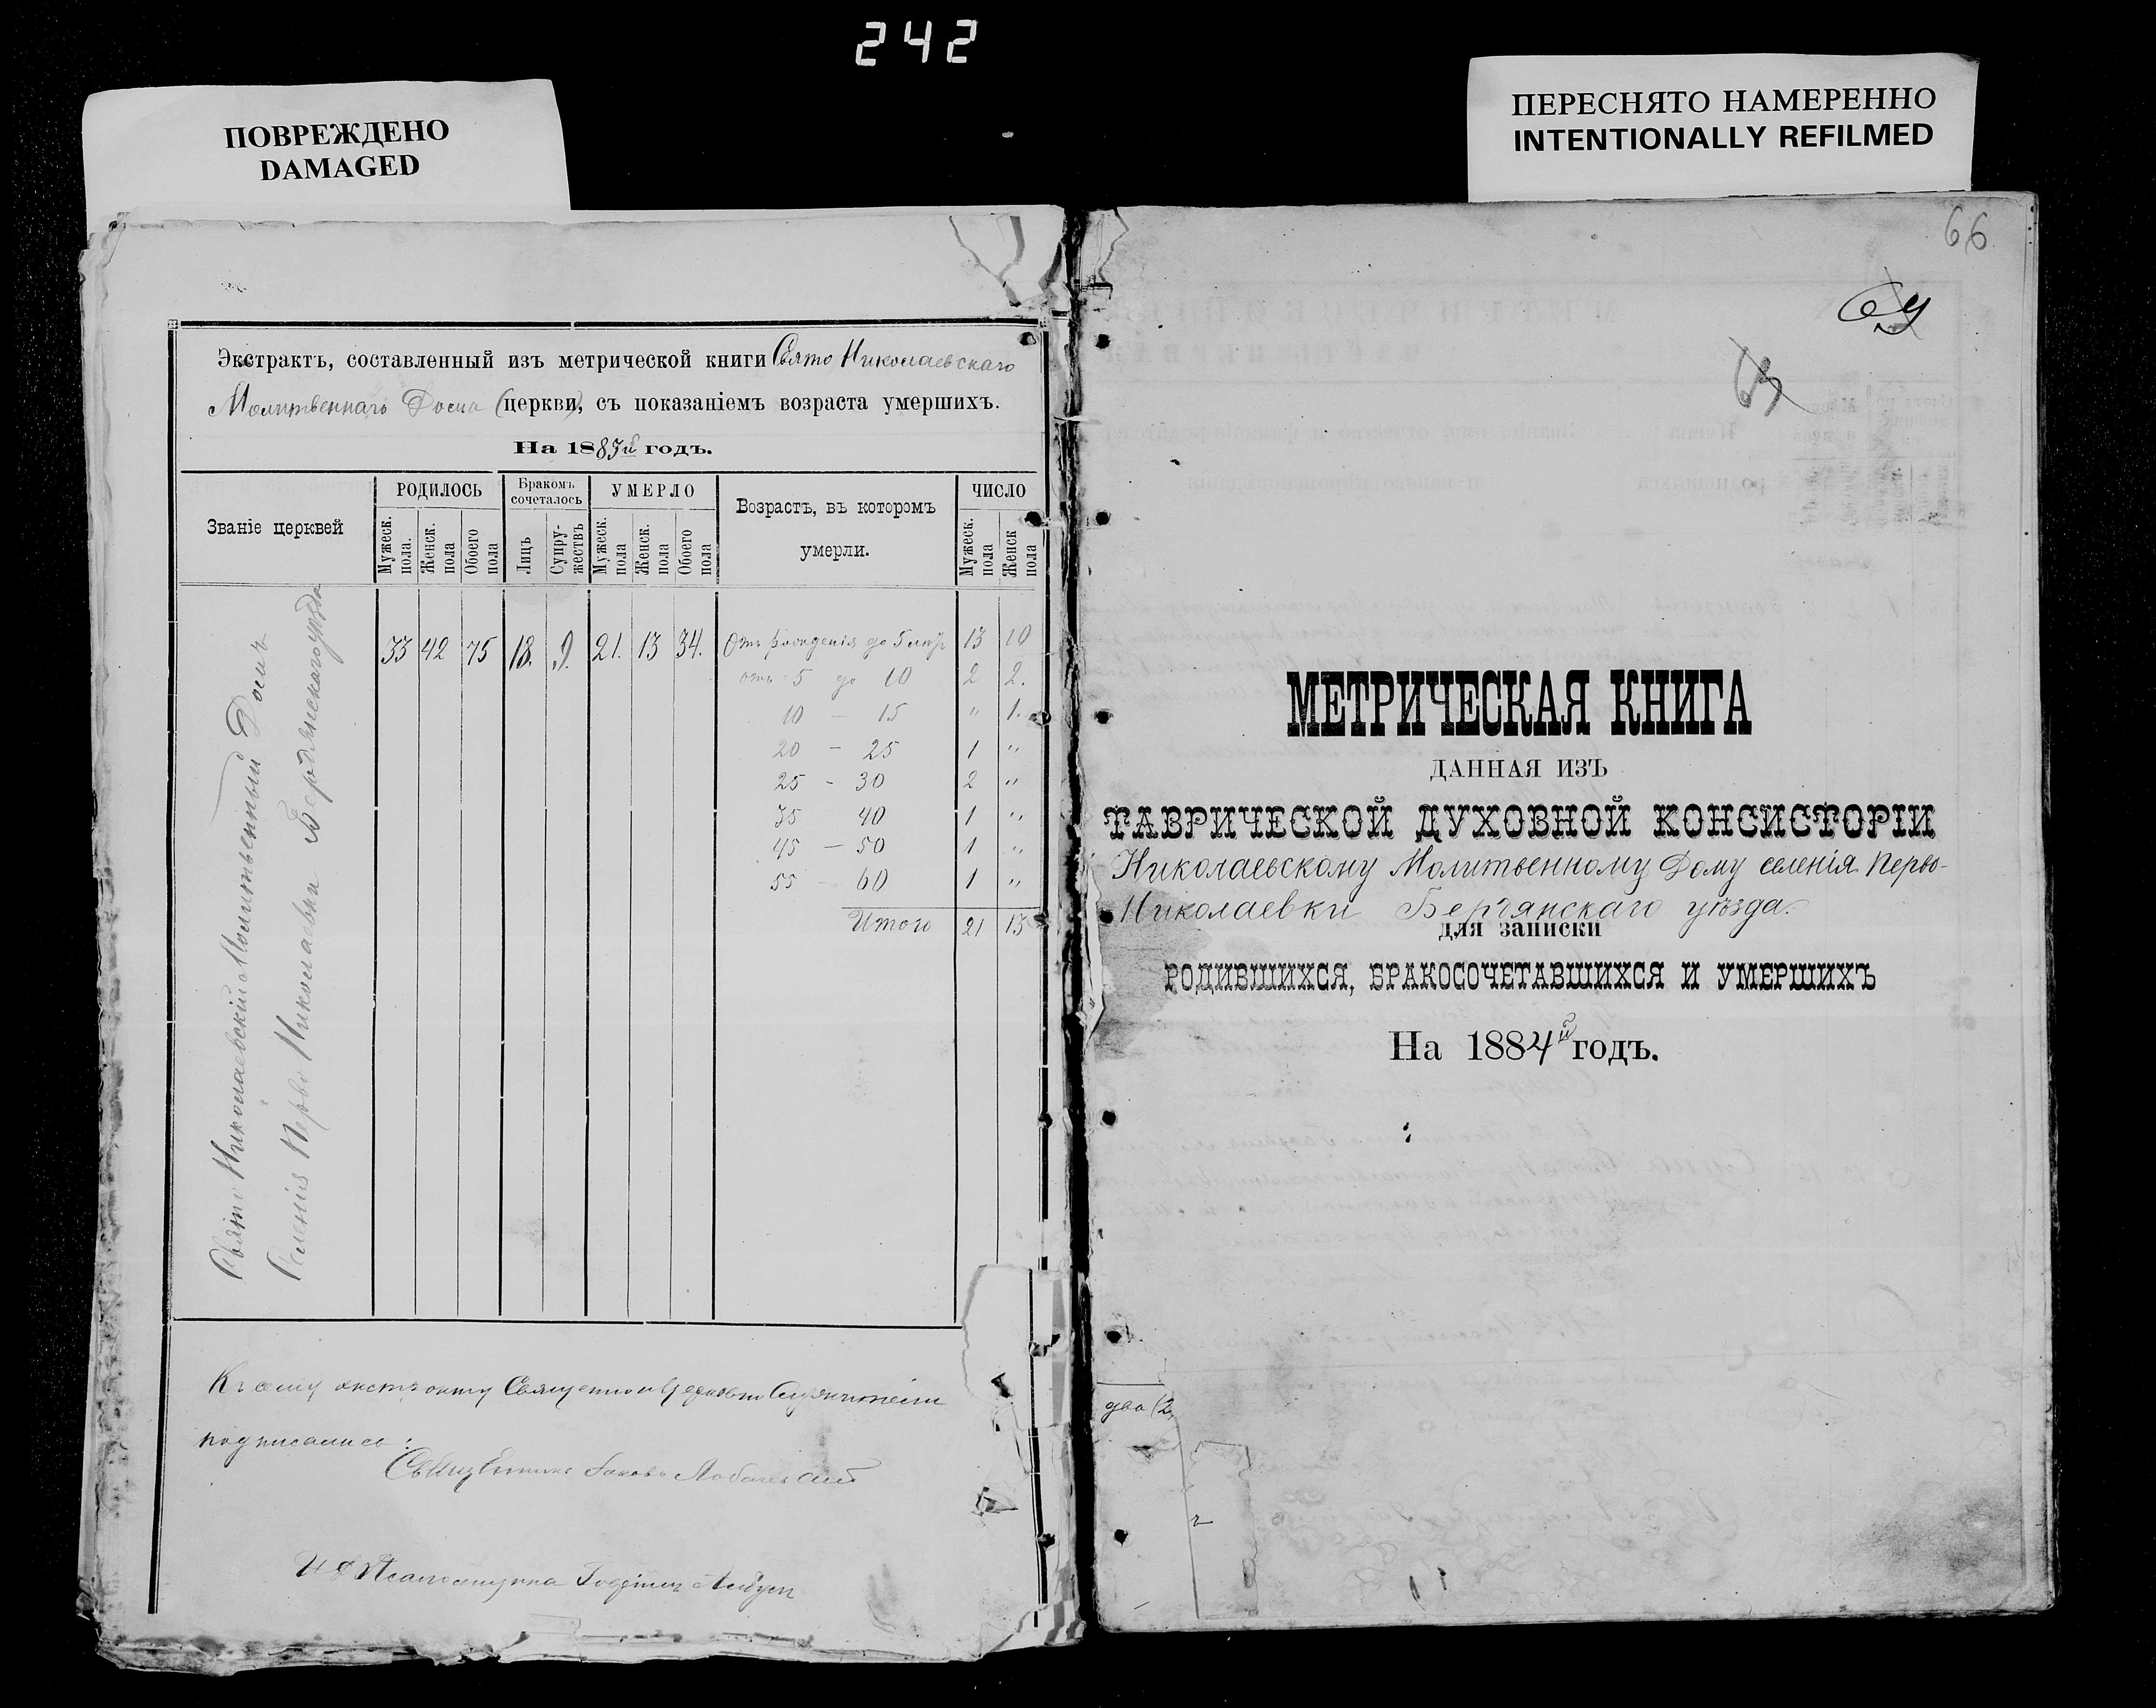 242
ПОВРЕЖДЕНО
DAMAGED
ПЕРЕСНЯТО НАМЕРЕННО
INTENTIONALLY REFILMED
Экстрактъ, составленный изъ метрической книги Свято Николаевскаго
Молитвеннаго Дома (церкви), съ показаніемъ возраста умершихъ.
На 1883й годъ.
Званіе церквей
РОДИЛОСЬ
Мужеск. пола.
Женск. пола
Обоего пола
Бракомъ сочеталось
Лицъ
Супружествъ
УМЕРЛО
Мужеск. пола
Женск. пола
Обоего пола
Возрастъ, въ которомъ
умерли.
ЧИСЛО
Мужеск. пола
Женск пола
Свято Николаевскій Молитвенный Домъ
Селенія Перво Николаевки Бердянскаго уѣзда
33 42 75 18. 9. 21. 13 34. Отъ рожденія до 5 лѣтъ 13 10
отъ 5 до 10 2 2.
10 — 15 " 1.
20 — 25 1 "
25 - 30 2 "
35 40 1 "
45 — 50 1 "
55 - 60 1 "
Итого 21 13
Къ сему экстракту Священно и Церковно Служители
подписались:
Священникъ Іаковъ
И д Псаломщика
66
64
63
МЕТРИЧЕСКАЯ КНИГА
ДАННАЯ ИЗЪ
ТАВРИЧЕСКОЙ ДУХОВНОЙ КОНСИСТОРІИ
Николаевскому Молитвенному Дому селенія Перво-
Николаевки Бердянскаго уѣзда.
для записки
РОДИВШИХСЯ, БРАКОСОЧЕТАВШИХСЯ И УМЕРШИХЪ
На 1884й годъ.
два (2